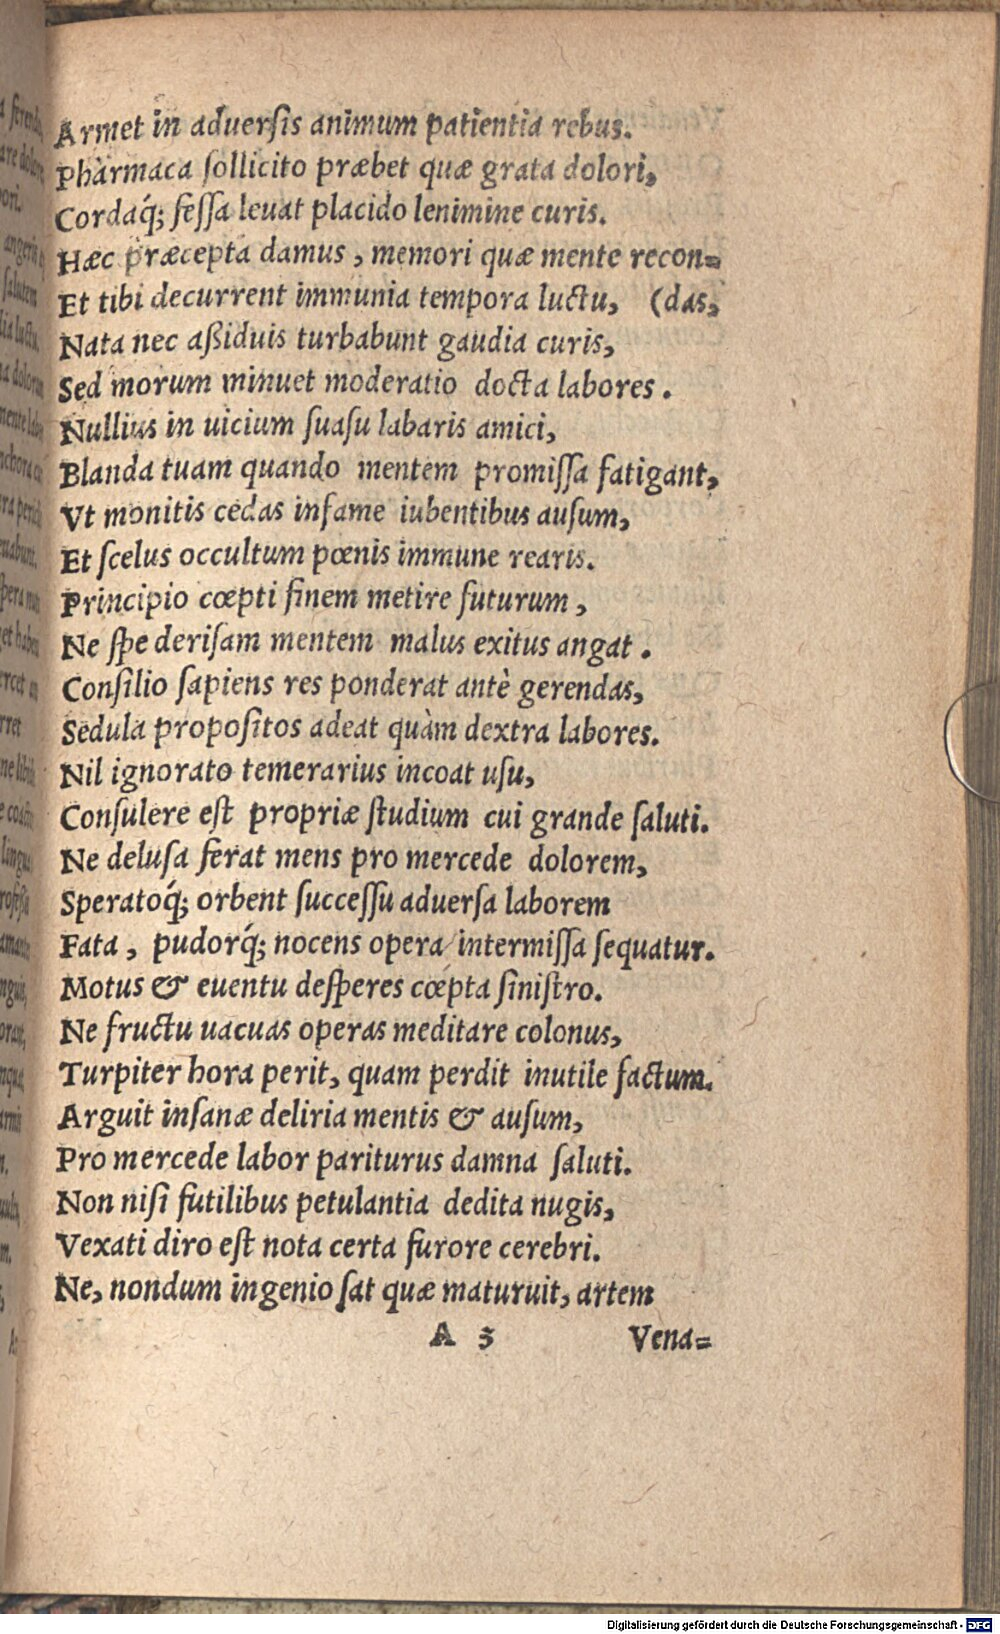 Armet in aduerſis animum patientia rebus.
Pharmaca ſollicito præbet quæ grata dolori,
Cordaq́; feſſa leuat placido lenimine curis.
Hæc præcepta damus, memori quæ mente recon=
Et tibi decurrent immunia tempora luctu, (das,
Nata nec aßiduis turbabunt gaudia curis,
Sed morum minuet moderatio docta labores.
Nullius in uicium ſuaſu labaris amici,
Blanda tuam quando mentem promiſſa fatigant,
Vt monitis cedas infame iubentibus auſum,
Et ſcelus occultum pœnis immune rearis.
Principio cœpti finem metire futurum,
Ne ſpe deriſam mentem malus exitus angat.
Conſilio ſapiens res ponderat antè gerendas,
Sedula propoſitos adeat quàm dextra labores.
Nil ignorato temerarius incoat uſu,
Conſulere eſt propriæ ſtudium cui grande ſaluti.
Ne deluſa ferat mens pro mercede dolorem,
Speratoq́; orbent ſucceſſu aduerſa laborem
Fata, pudorq́; nocens opera intermiſſa ſequatur.
Motus & euentu deſperes cœpta ſiniſtro.
Ne fructu uacuas operas meditare colonus,
Turpiter hora perit, quam perdit inutile factum.
Arguit inſanæ deliria mentis & auſum,
Pro mercede labor pariturus damna ſaluti.
Non niſi futilibus petulantia dedita nugis,
Vexati diro eſt nota certa furore cerebri.
Ne, nondum ingenio ſat quæ maturuit, artem
A 3 Vena=
Digitalisierung gefördert durch die Deutsche Forschungsgemeinschaft - DFG